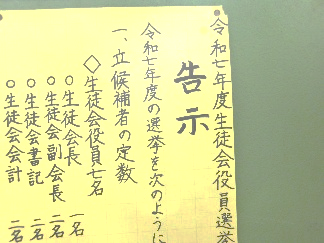 令和七年度生徒会役員選挙
告示
令和七年度の選挙を次のように
一、立候補者の定数
◇生徒会役員七名
○生徒会長 一名
○生徒会副会長 二名
○生徒会書記 二名
○生徒会会計 二名